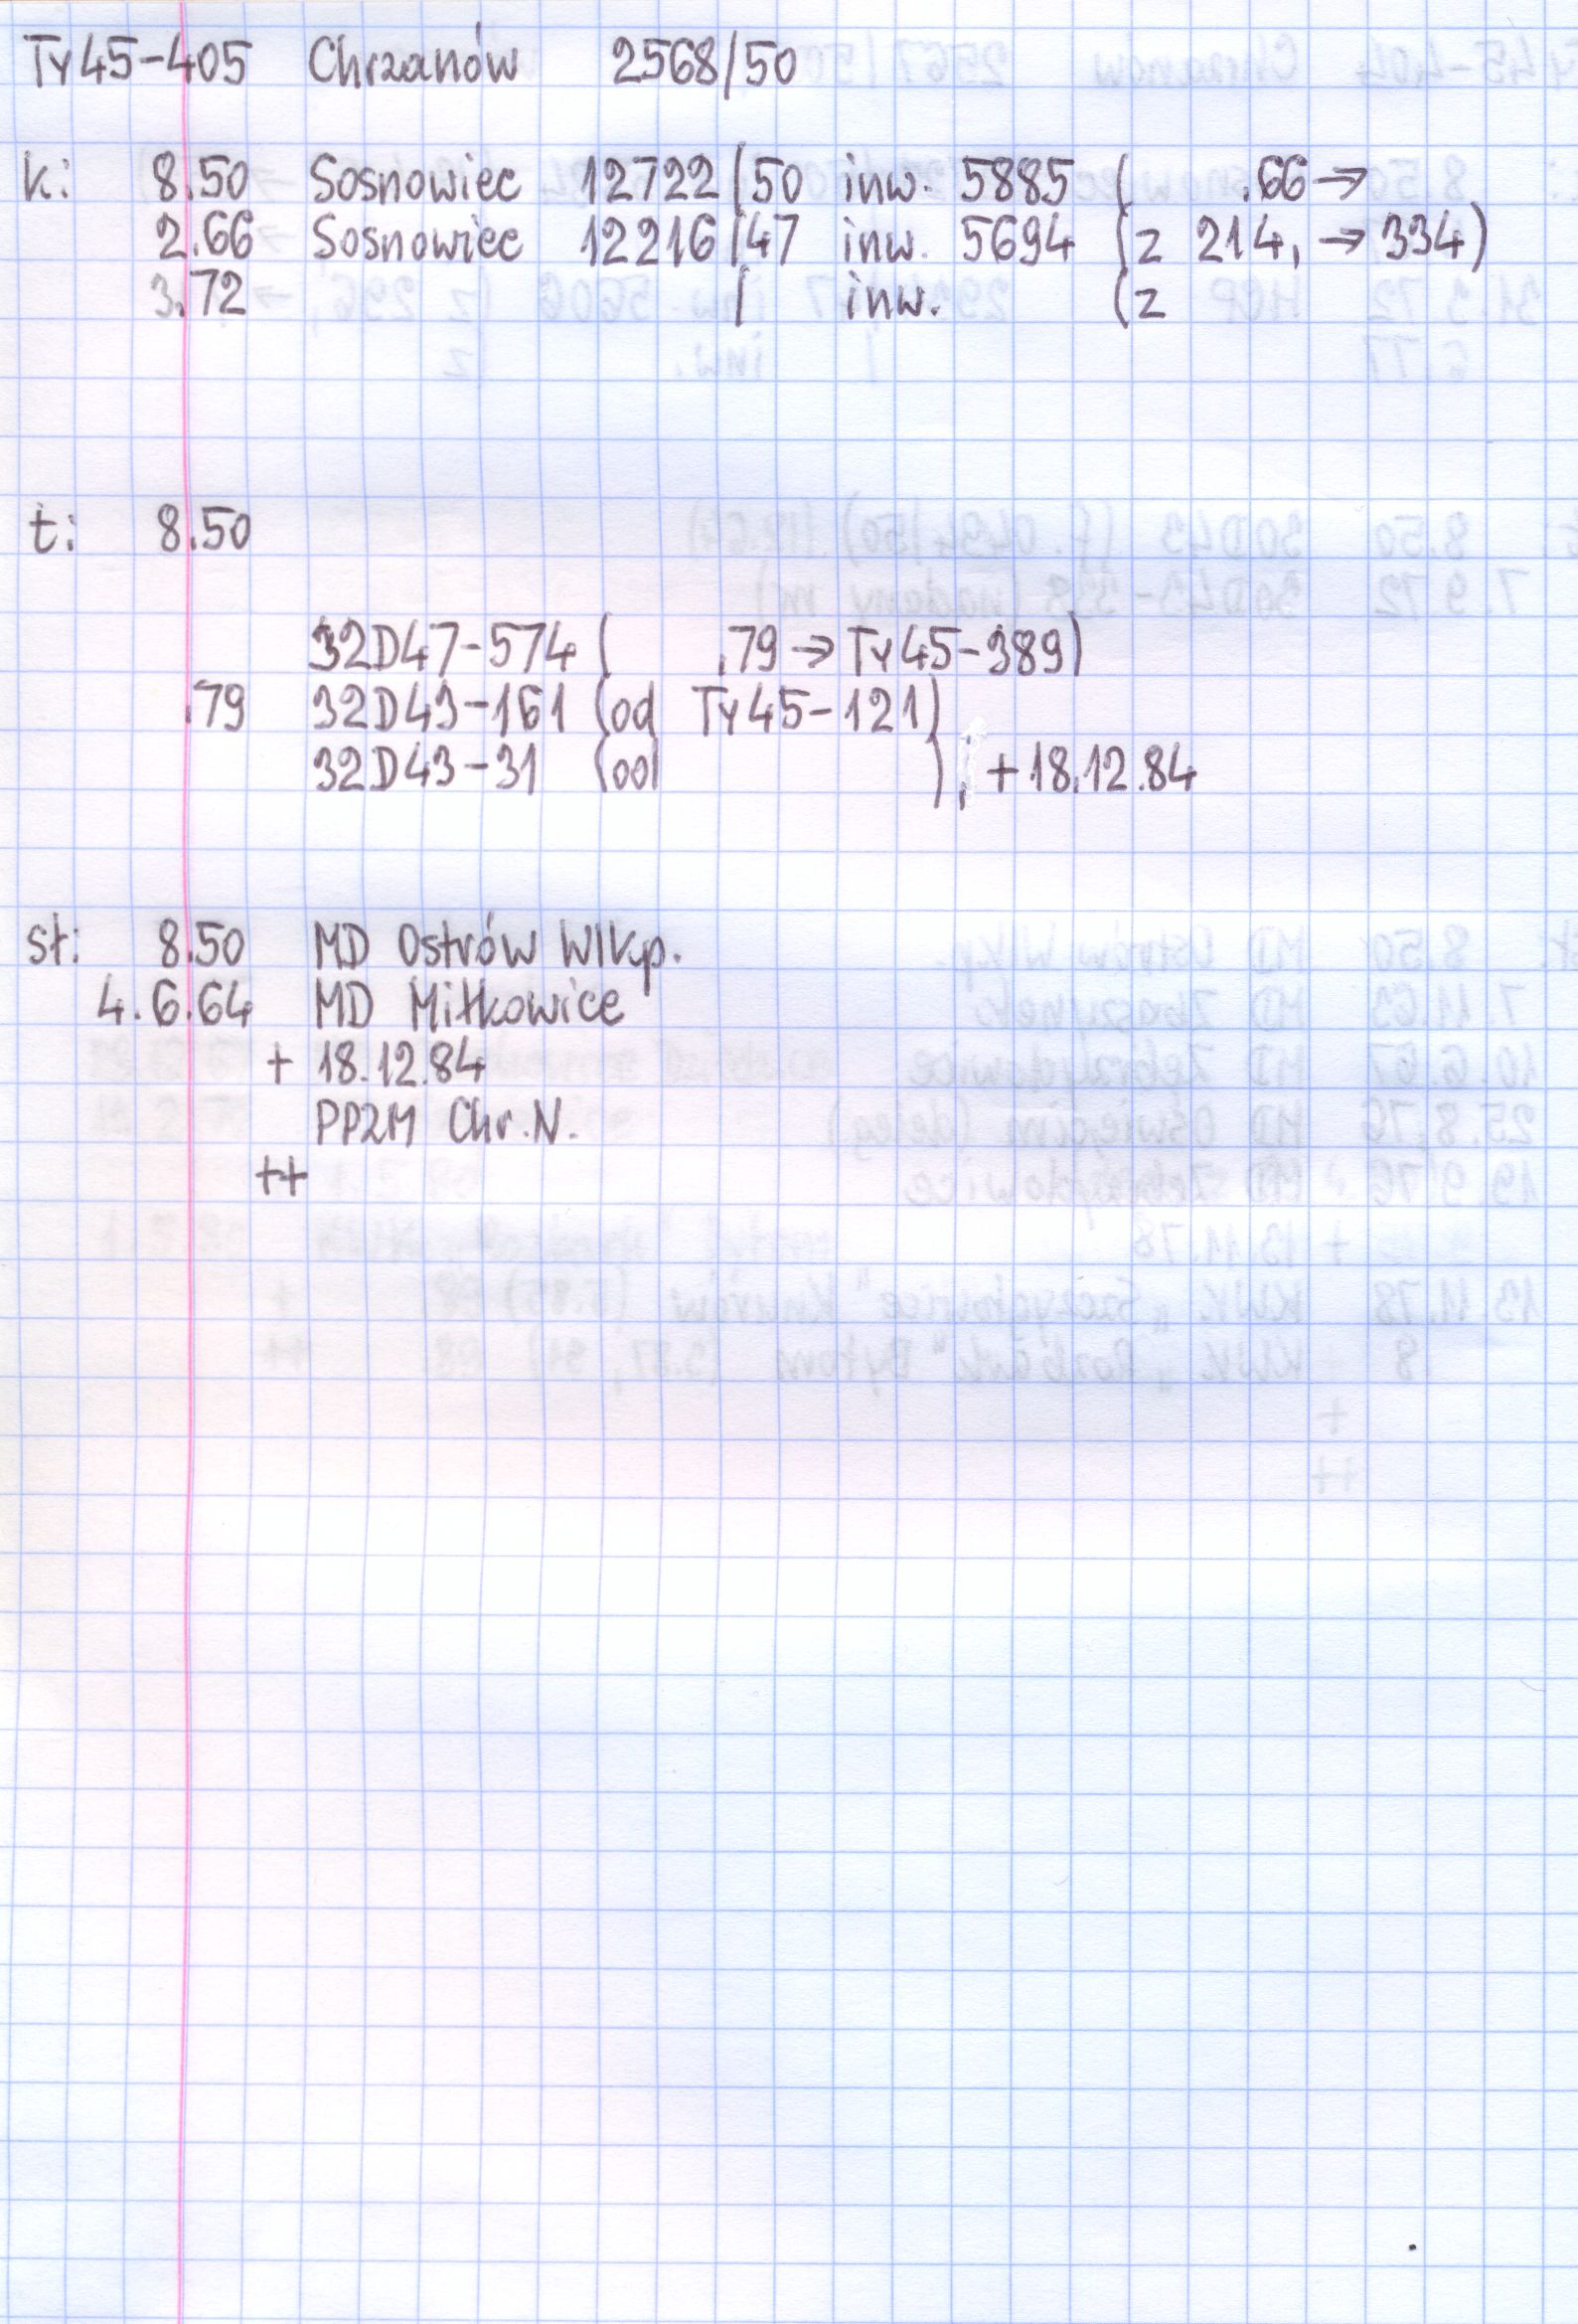 Ty45-405 Chrzanów 2568/50
k: 8.50 Sosnowiec 12722/50 inw. 5885 ( .66→
2.66 Sosnowiec 12216/47 inw. 5694 (z 214, → 334)
3.72 / inw. (z
t: 8.50
32D47-574 ( .79 → Ty45-389)
.79 32D43-161 (od Ty45-121)
32D43-31 (od ), +18.12.84
sł: 8.50 MD Ostrów Wlkp.
4.6.64 MD Miłkowice
+ 18.12.84
PPZM Chr.N.
++